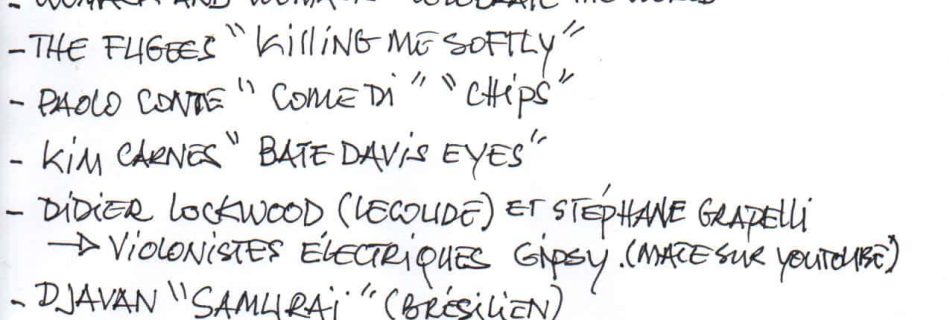 - WOMACK AND WOMACK "CELEBRATE THE WORLD"
- THE FUGEES "KILLING ME SOFTLY"
- PAOLO CONTE "COME DI" "CHIPS"
- KIM CARNES "BATE DAVIS EYES"
- DIDIER LOCKWOOD (LECOUDE) ET STÉPHANE GRAPELLI
→ VIOLONISTES ÉLECTRIQUES GIPSY. (MATE SUR YOUTOUBE)
- DJAVAN "SAMURAI" (BRÉSILIEN)